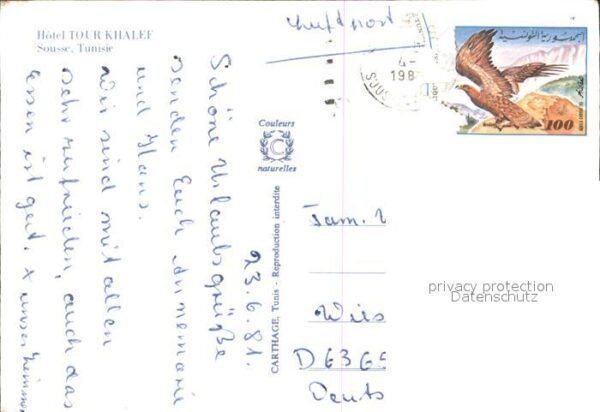 Hôtel TOUR KHALEF
Sousse, Tunisie
Luftpost
الجمهورية التونسية
100
198
SOUS
Couleurs
C
naturelles
CARTHAGE, Tunis - Reproduction interdite
23.6.81.
Schöne Urlaubsgrüße
senden Euch Annemarie
und Hans.
Wir sind mit allen
sehr zufrieden, auch das
Essen ist gut. x unser Zimmer
Fam.
Wies
D 6365
Deuts
privacy protection
Datenschutz